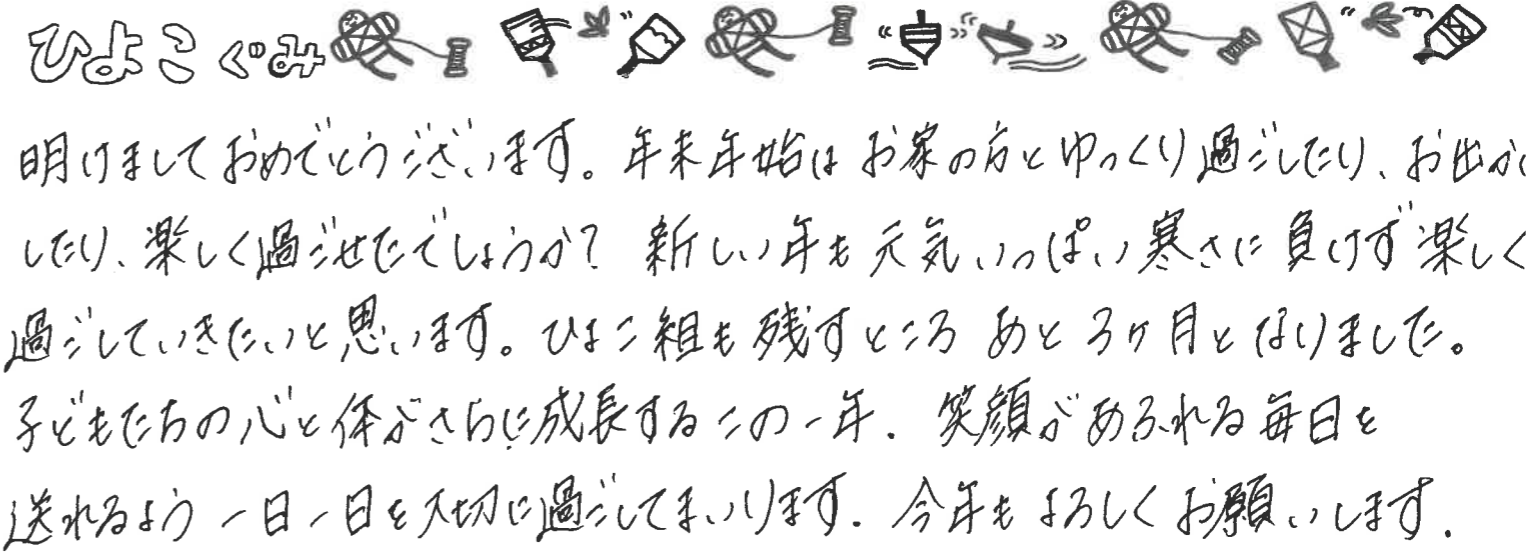 ひよこぐみ
明けましておめでとうございます。年末年始はお家の方とゆっくり過ごしたり、お出か
したり、楽しく過ごせたでしょうか?新しい年も元気いっぱい寒さに負けず楽しく
過ごしていきたいと思います。ひよこ組も残すところ あと3ヶ月となりました。
子どもたちの心と体がさらに成長するこの一年. 笑顔があふれる毎日を
送れるよう 一日一日を大切に過ごしてまいります. 今年もよろしくお願いします.